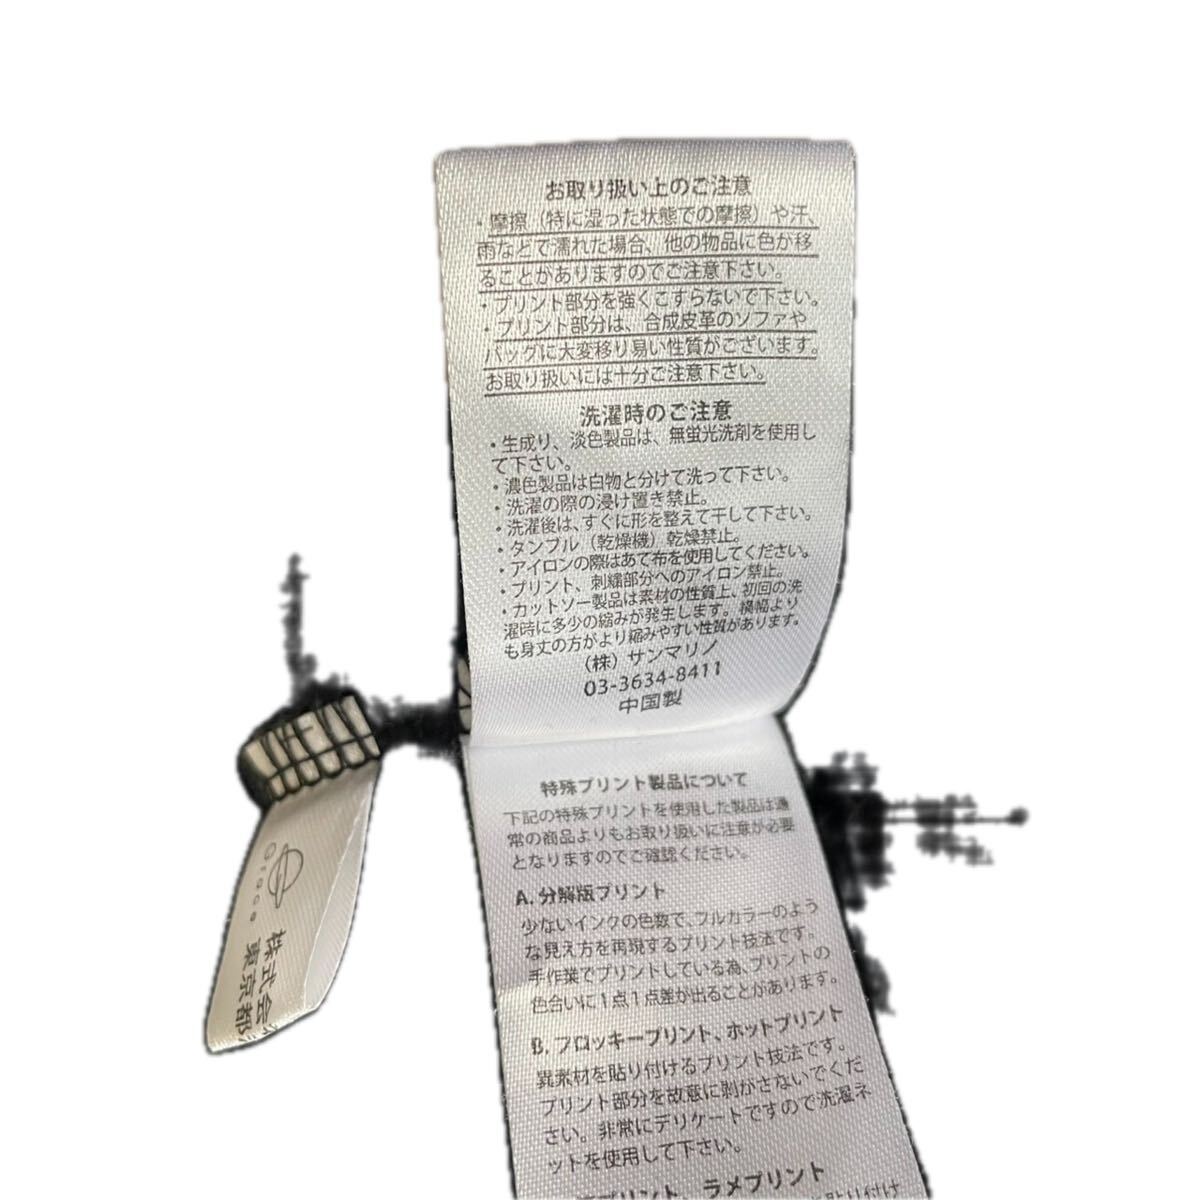 お取り扱い上のご注意
・摩擦（特に湿った状態での摩擦）や汗、
雨などで濡れた場合、他の物品に色が移
ることがありますのでご注意下さい。
・プリント部分を強くこすらないで下さい。
・プリント部分は、合成皮革のソファや
バッグに大変移り易い性質がございます。
お取り扱いには十分ご注意下さい。
洗濯時のご注意
・生成り、淡色製品は、無蛍光洗剤を使用し
て下さい。
・濃色製品は白物と分けて洗って下さい。
・洗濯の際の浸け置き禁止。
・洗濯後は、すぐに形を整えて干して下さい。
・タンブル（乾燥機）乾燥禁止。
・アイロンの際はあて布を使用してください。
・プリント、刺繍部分へのアイロン禁止。
・カットソー製品は素材の性質上、初回の洗
濯時に多少の縮みが発生します。横幅より
も身丈の方がより縮みやすい性質があります。
（株）サンマリノ
03-3634-8411
中国製
特殊プリント製品について
下記の特殊プリントを使用した製品は通
常の商品よりもお取り扱いに注意が必要
となりますのでご確認ください。
A. 分解版プリント
少ないインクの色数で、フルカラーのよう
な見え方を再現するプリント技法です。
手作業でプリントしている為、プリントの
色合いに1点1点差が出ることがあります。
B. フロッキープリント、ホットプリント
異素材を貼り付けるプリント技法です。
プリント部分を故意に剥がさないでくだ
さい。非常にデリケートですので洗濯ネ
ットを使用して下さい。
プリント、ラメプリント
貼り付け
Grace
株式会
東京都